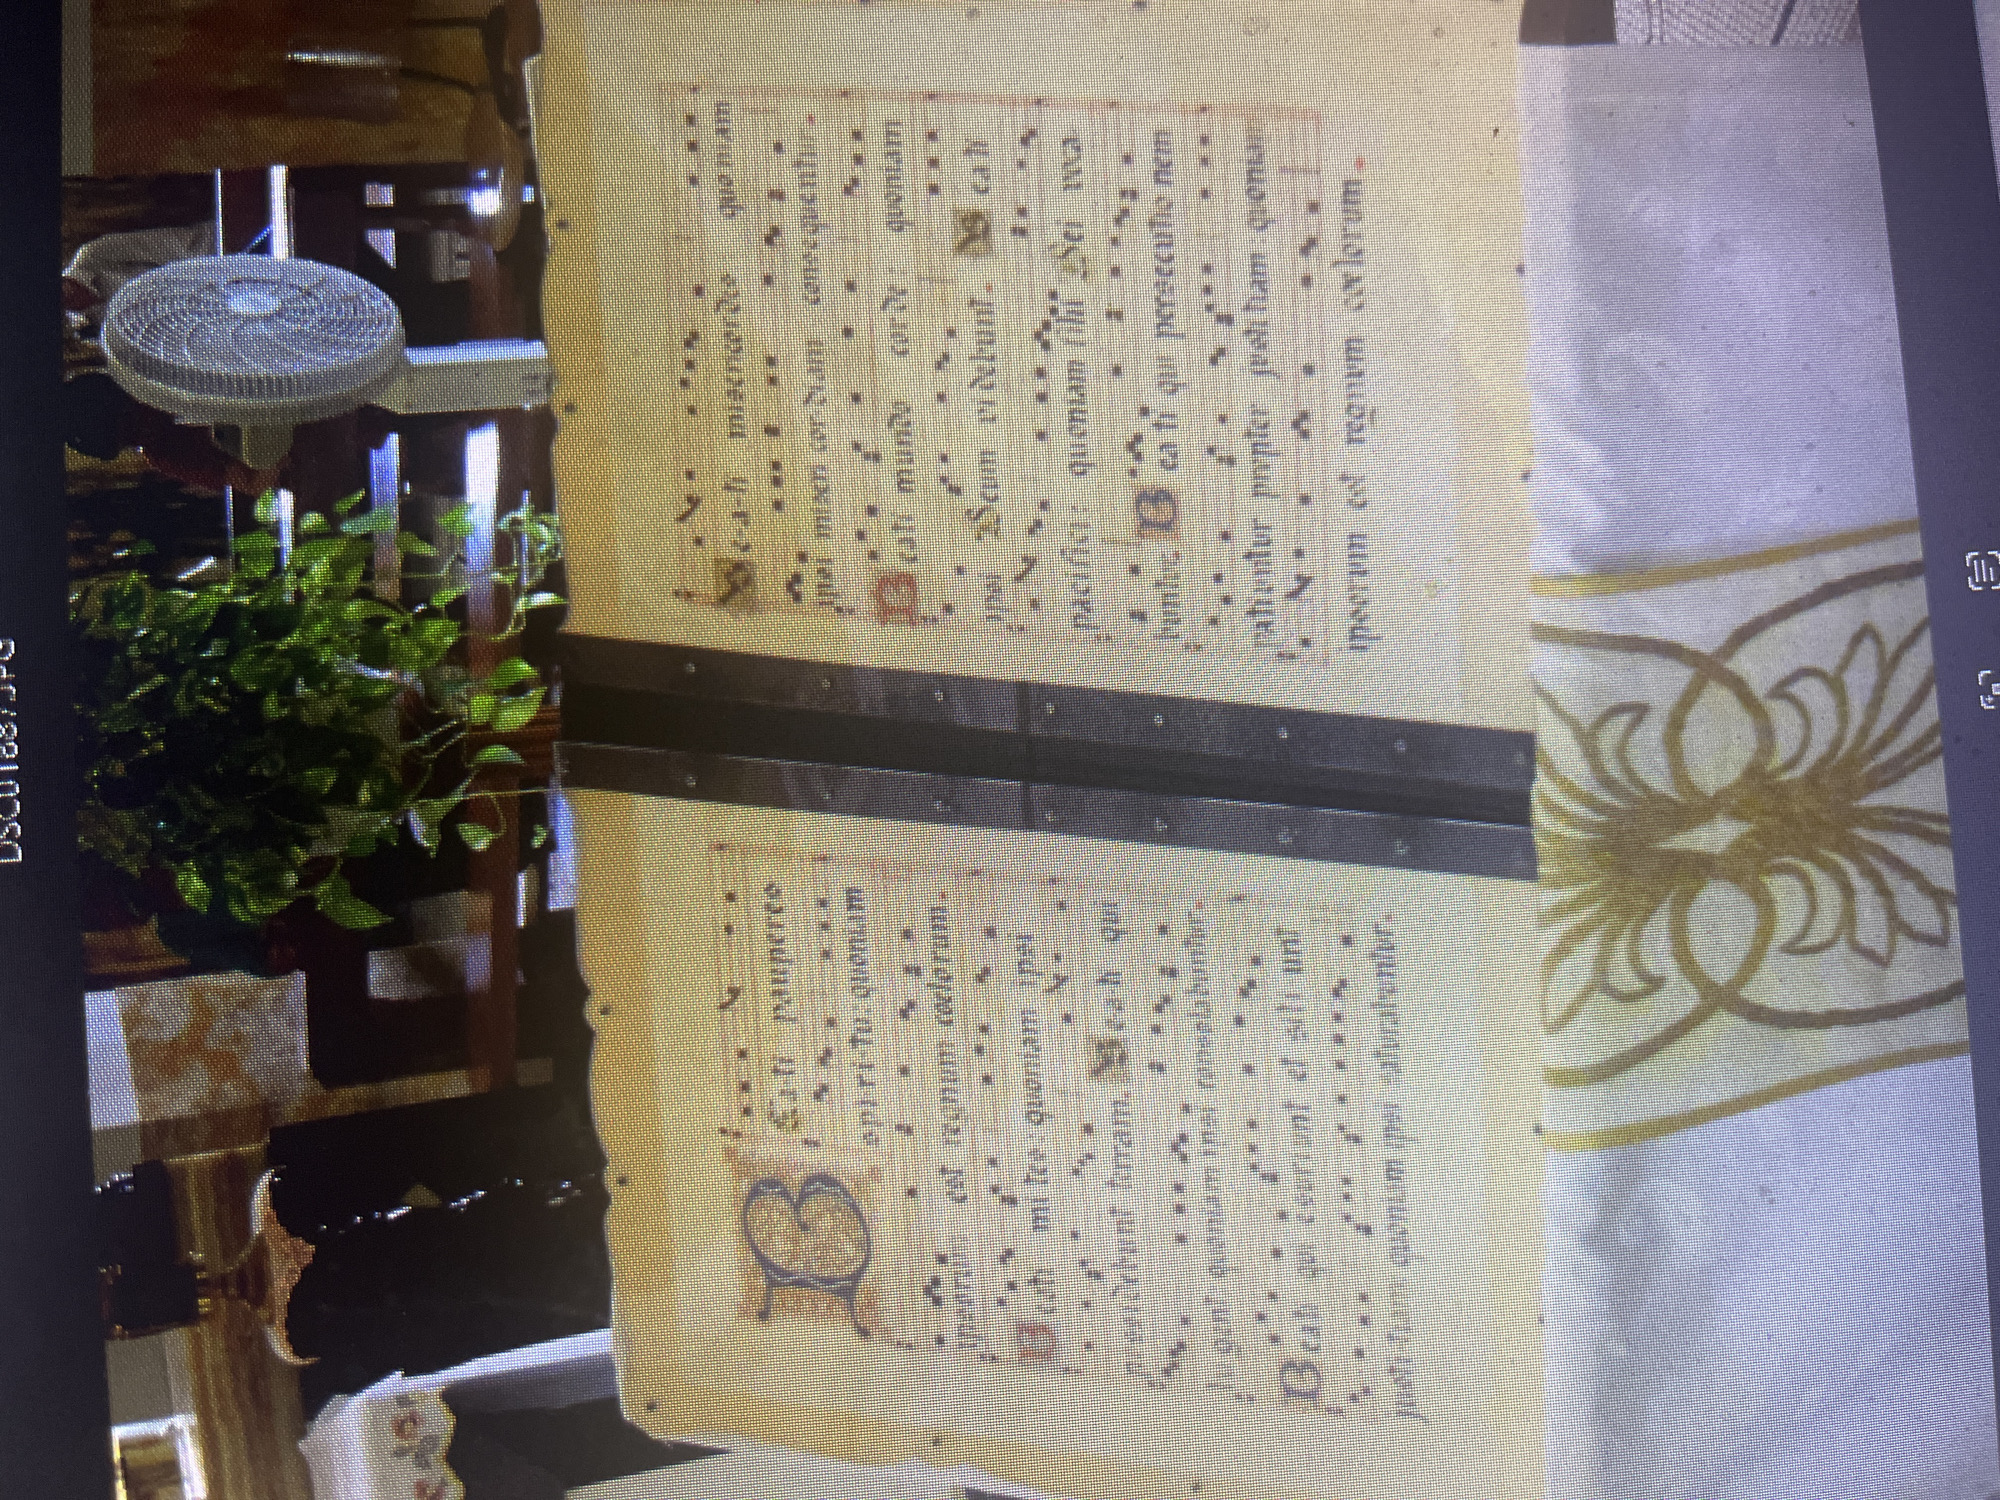 B Ea-ti pauperes
spi-ri-tu: quoniam
ipsorum est regnum caelorum.
Beati mi tes: quoniam ipsi
possidebunt terram. Be a-ti qui
lugent quoniam ipsi consolabuntur.
Beati qui esuri unt et siti unt
justi-tiam: quoniam ipsi saturabuntur.
Be-a-ti misericordes quoniam
ipsi miseri cor-diam consequentur.
Beati mundo corde: quoniam
ipsi Deum vi debunt. Be a ti
pacifici: quoniam filii Dei voca
buntur. B ea ti qui persecutio nem
patiuntur propter justitiam quoniam
ipsorum est regnum coelorum.